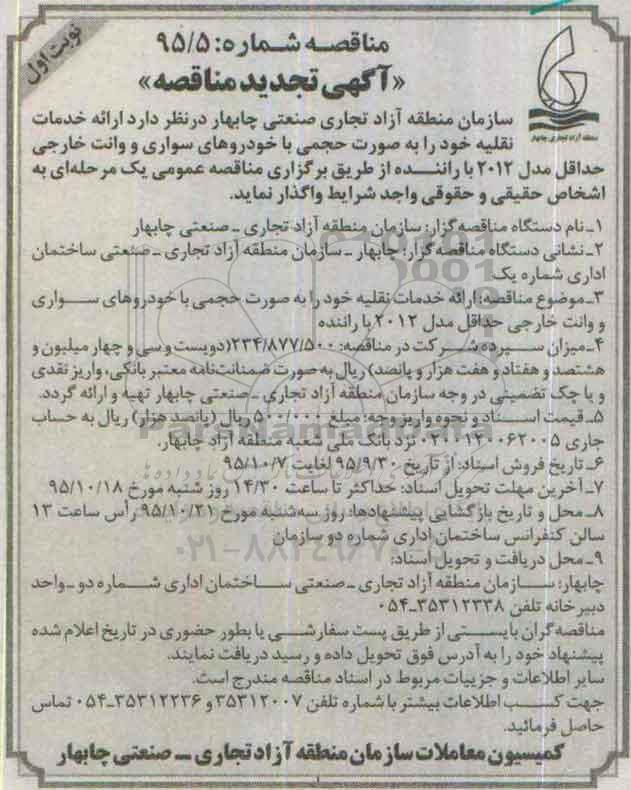 نوبت اول
مناقصه شماره: ۹۵/۵
«آگهی تجدید مناقصه»
منطقه آزاد تجاری چابهار
سازمان منطقه آزاد تجاری صنعتی چابهار درنظر دارد ارائه خدمات
نقلیه خود را به صورت حجمی با خودروهای سواری و وانت خارجی
حداقل مدل ۲۰۱۲ با راننده از طریق برگزاری مناقصه عمومی یک مرحله‌ای به
اشخاص حقیقی و حقوقی واجد شرایط واگذار نماید.
۱ـ نام دستگاه مناقصه‌گزار: سازمان منطقه آزاد تجاری ـ صنعتی چابهار
۲ـ نشانی دستگاه مناقصه‌گزار: چابهار ـ سازمان منطقه آزاد تجاری ـ صنعتی ساختمان
اداری شماره یک
۳ـ موضوع مناقصه: ارائه خدمات نقلیه خود را به صورت حجمی با خودروهای سواری
و وانت خارجی حداقل مدل ۲۰۱۲ با راننده
۴ـ میزان سپرده شرکت در مناقصه: ۲۳۴/۸۷۷/۵۰۰(دویست و سی و چهار میلیون و
هشتصد و هفتاد و هفت هزار و پانصد) ریال به صورت ضمنانت‌نامه معتبر بانکی، واریز نقدی
و یا چک تضمینی در وجه سازمان منطقه آزاد تجاری ـ صنعتی چابهار تهیه و ارائه گردد.
۵ـ قیمت اسناد و نحوه واریز وجه: مبلغ ۵۰۰/۰۰۰ ریال (پانصد هزار) ریال به حساب
جاری ۰۲۰۰۱۲۰۰۶۲۰۰۵ نزد بانک ملی شعبه منطقه آزاد چابهار.
۶ـ تاریخ فروش اسناد: از تاریخ ۹۵/۹/۳۰ لغایت ۹۵/۱۰/۷
۷ـ آخرین مهلت تحویل اسناد: حداکثر تا ساعت ۱۴/۳۰ روز شنبه مورخ ۹۵/۱۰/۱۸
۸ـ محل و تاریخ بازگشایی پیشنهادها: روز سه‌شنبه مورخ ۹۵/۱۰/۲۱ رأس ساعت ۱۳
سالن کنفرانس ساختمان اداری شماره دو سازمان
۹ـ محل دریافت و تحویل اسناد:
چابهار: سازمان منطقه آزاد تجاری ـ صنعتی ساختمان اداری شماره دو ـ واحد
دبیرخانه تلفن ۳۵۳۱۲۳۳۸ـ۰۵۴
مناقصه‌گران بایستی از طریق پست سفارشی یا بطور حضوری در تاریخ اعلام شده
پیشنهاد خود را به آدرس فوق تحویل داده و رسید دریافت نمایند.
سایر اطلاعات و جزییات مربوط در اسناد مناقصه مندرج است.
جهت کسب اطلاعات بیشتر با شماره تلفن ۳۵۳۱۲۰۰۷ و ۳۵۳۱۲۲۳۶ـ۰۵۴ تماس
حاصل فرمائید.
کمیسیون معاملات سازمان منطقه آزاد تجاری ــ صنعتی چابهار